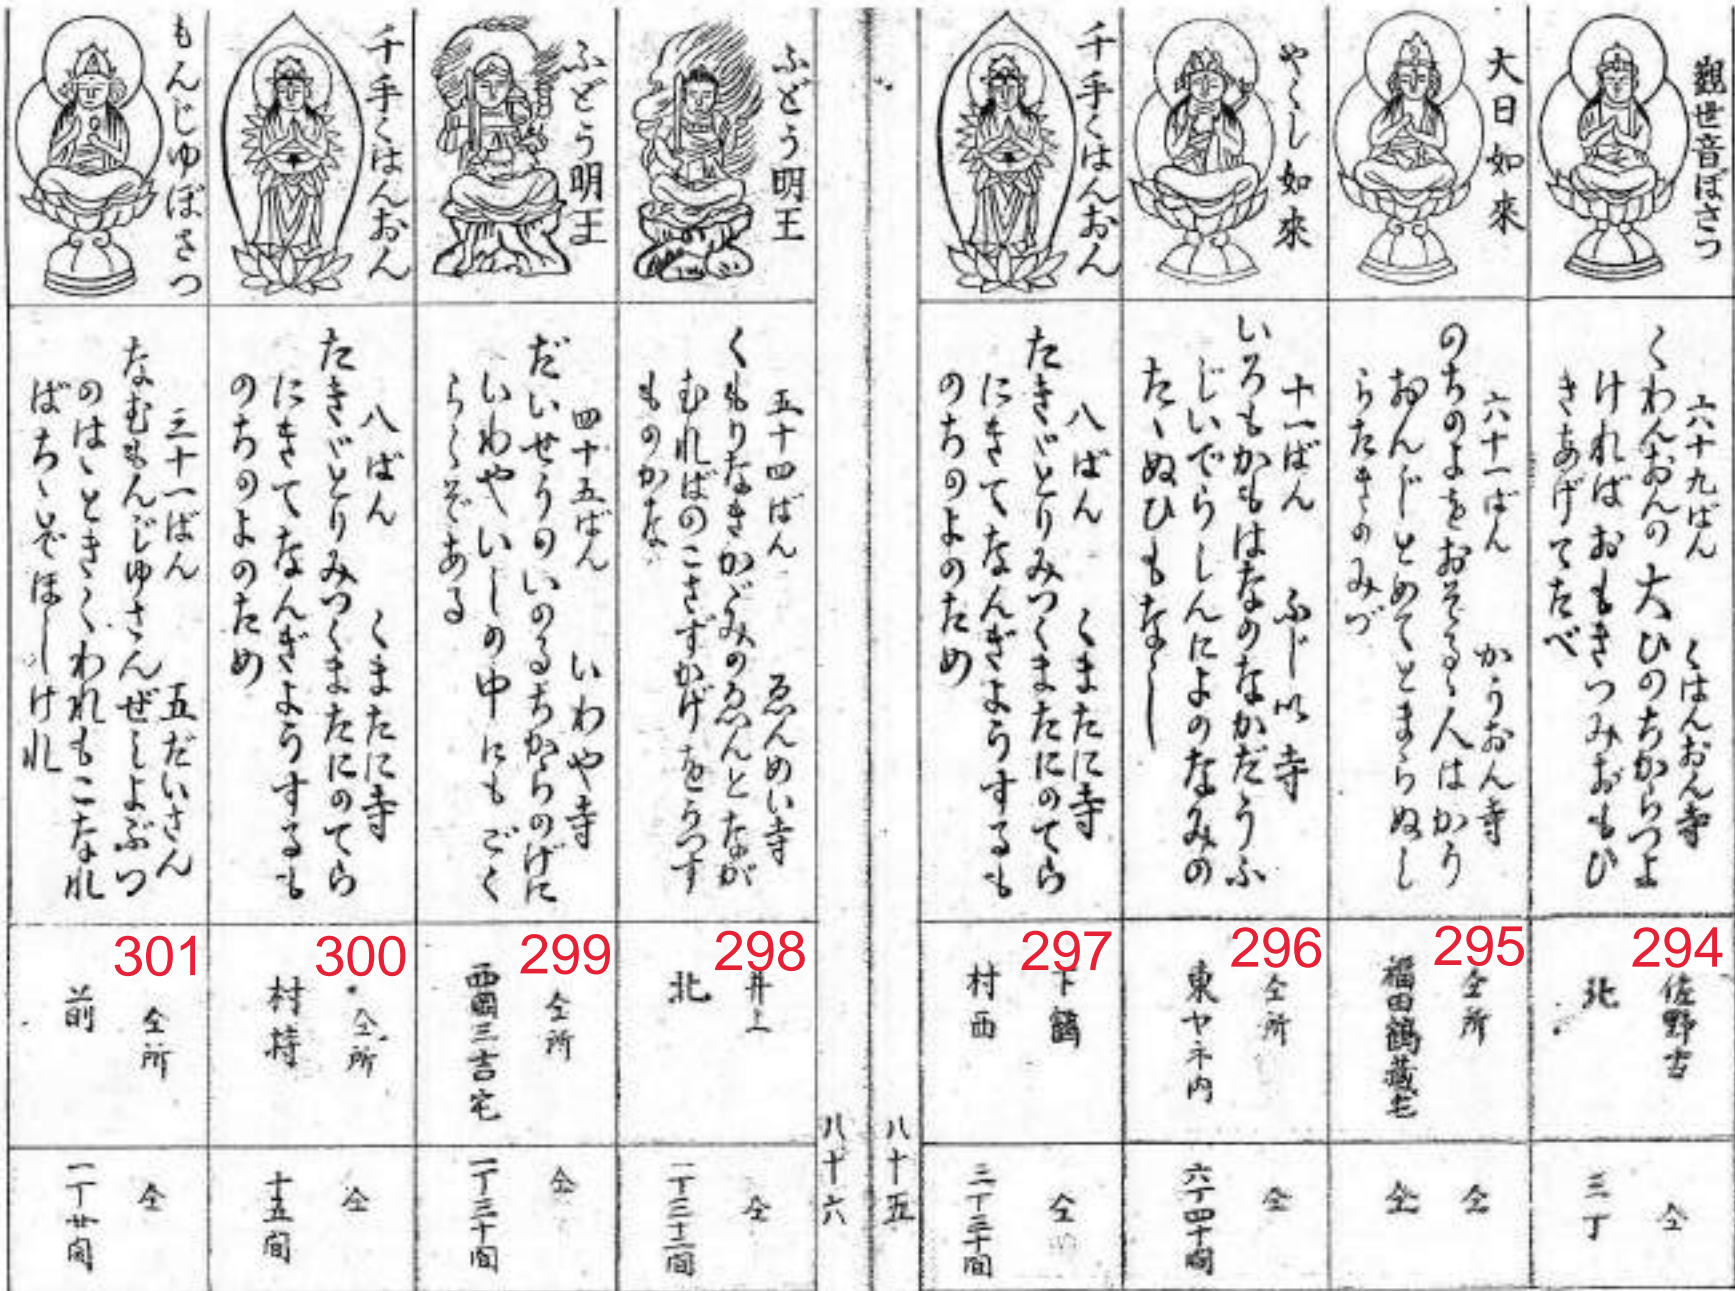 觀世音ぼさつ
六十九ばん　くはんおん寺
くわんおんの大ひのちからつよ
ければおもきつみおもひ
きあげてたべ
294
佐野古
北
仝
三丁
大日如來
六十一ばん　かうおん寺
のちのよをおそるゝ人はかう
おんじとめてとまらぬし
らたきのみづ
295
仝所
福田鶴藏宅
仝
仝
やくし如來
十一ばん　ふじ以寺
いろもかもはなのなかだうふ
じいでらしんによのなみの
たゝぬひもなし
296
仝所
東ヤネ内
仝
六丁四十間
千手くはんおん
八ばん　くまたに寺
たきゞとりみつくまたにのてら
にきてなんぎようするも
のちのよのため
297
下鶴
村西
仝
二丁三十間
八十五
八十六
ふどう明王
五十四ばん　ゑんめい寺
くもりなきかゞみのゑんとなが
むればのこさずかげをうつす
ものかな
298
井上
北
仝
一丁三十二間
ふどう明王
四十五ばん　いわや寺
だいせうのいのるちからのげに
いわやいしの中にもごく
らくぞある
299
仝所
西岡三吉宅
仝
一丁三十間
千手くはんおん
八ばん　くまたに寺
たきゞとりみつくまたにのてら
にきてなんぎようするも
のちのよのため
300
仝所
村持
仝
十五間
もんじゆぼさつ
三十一ばん　五だいさん
なむもんじゆさんぜしよぶつ
のはゝときくわれもこなれ
ばちゝぞほしけれ
301
仝所
前
仝
一丁廿間